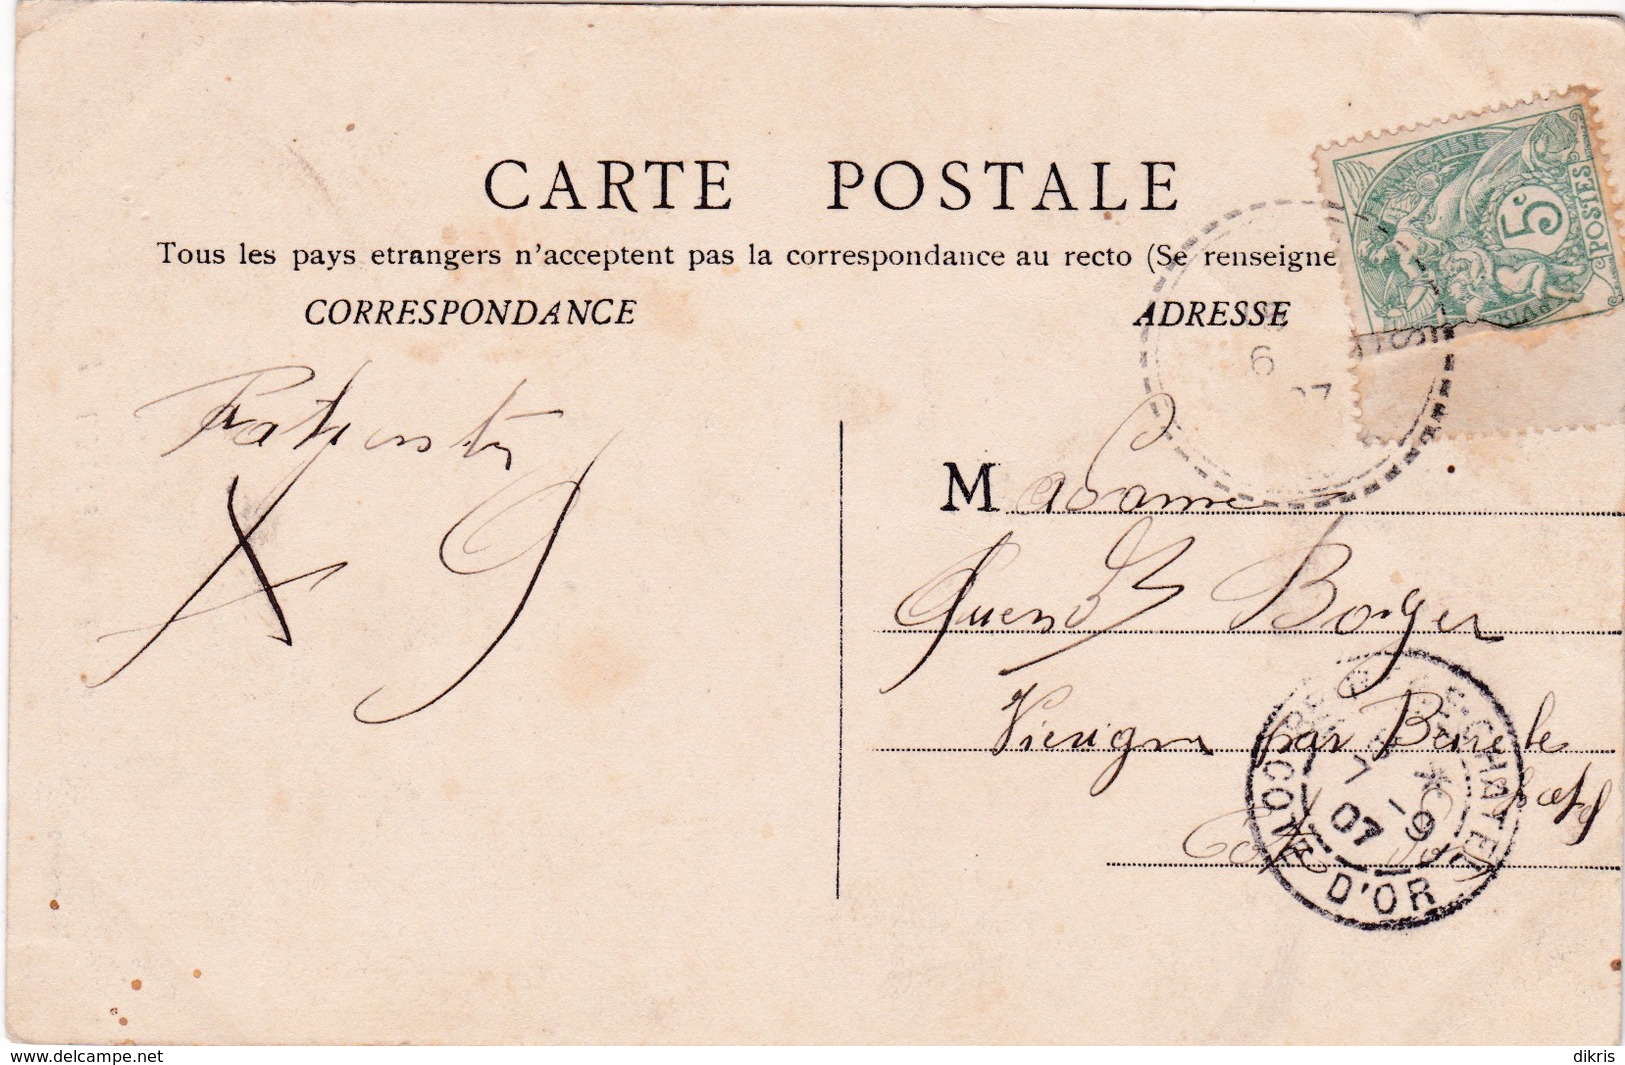 CARTE POSTALE
Tous les pays etrangers n'acceptent pas la correspondance au recto (Se renseigne
CORRESPONDANCE
ADRESSE
FRANÇAISE
5c
POSTES
6
07
Madame
Borger
par Beire le
Chatel
Côte d'or
BEIRE-LE-CHATEL
7 -9
07
COTE D'OR
www.delcampe.net
dikris